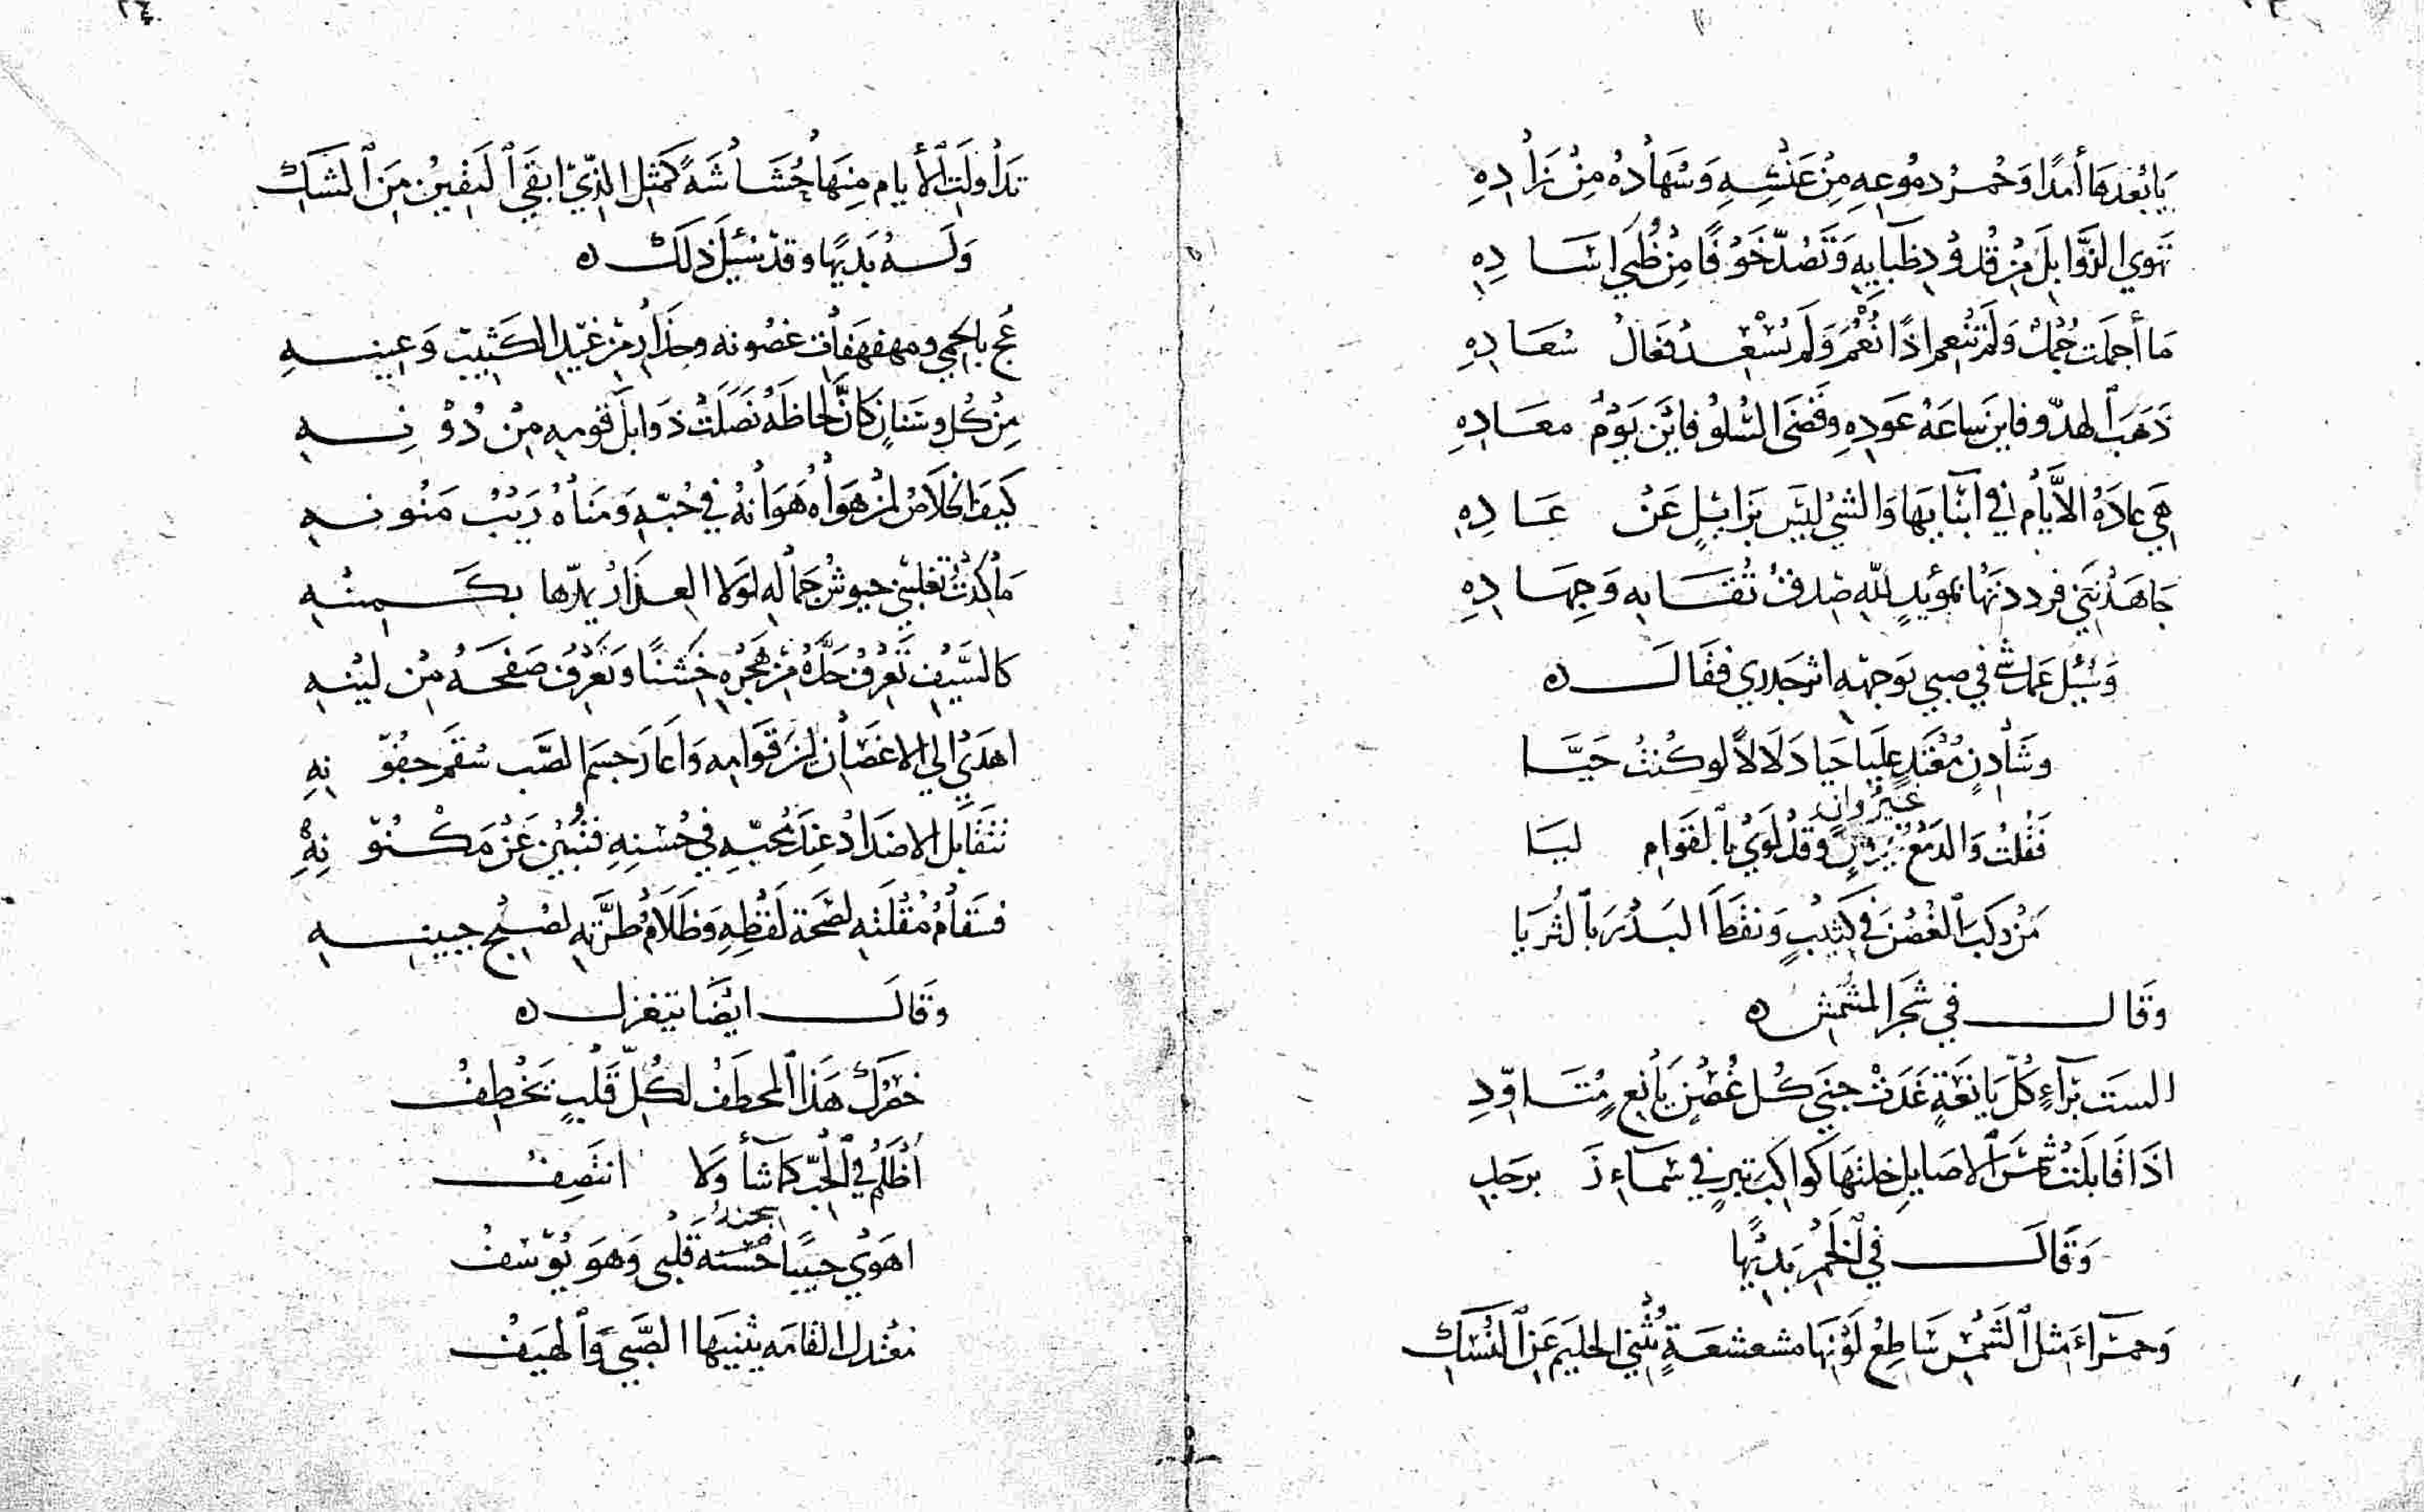 يَا بُعْدَهَا أمَدًا وَخُمْرُ دمُوعِهِ مِنْ عَيْشِهِ وَسُهَادُهُ مِنْ زَادِهِ
تهَوي الذَّوابِلَ مِنْ قُدُودِ ظبَايِهِ وَتَصُدّ خَوْفًا مِنْ ظُبَي اسَادِهِ
مَا أجمَلَت جُمْلٌ وَلَم تنْعِم اذًا نُعْمٌ وَلَم تُسْعِدْ فعَالُ سُعَادِهِ
ذَهَبَ الهدّو فاين سَاعَةُ عَودِهِ وَقضَى السُّلوُ فايَن يَوْمُ معَادِهِ
هِيَ عادَةُ الأيَّامِ في ابْنَايهَا وَالشيْ ليَسَ بزايلٍ عَنْ عَادِهِ
جَاهَدْنَنِي فرددتهَا بمؤيدٍ للهِ صدقُ ثقَابهِ وَجِهَادِهِ
وَسُيُل عَمل شي في صبي بوَجهْه اثر جدري فقَالَ ه
وشَادِنٍ مُقْبَلٍ عليَا حيَا دَلَالاً لو كُنتُ حَيَّا
غيرُ وانٍ
فقُلتُ وَالدمْعُ وقدْ لوَي بالقَوام ليَا
مَنْ ركبَ الغُصْنَ في كَثيبٍ وَنقطَ البَدْرَ بالثُريَا
وقَال في شَجر المشْمش ه
السَت تَرآءِ كلّ يَانعَةٍ غَدَتْ جنَي كُل غُصْنٍ يَانع مُتَاوّدِ
اذَا قابَلتْ شمْسَ الاصَايلِ خلتهَا كوَاكبَ تبرٍ في سَمآءِ زَبرجَدِ
وَقَالَ في الخَمْر بَديْهًا
وَحمرَآءَ مثل الشَّمْس سَاطِعُ لَوْنِهَا مشعشعَةٍ تُثْنِي الحليَم عَن النُسْكِ
تدَاولَت الأيام مِنهَا حُشَاشَةً كَمثِل الذّي ابقَي اليَقينُ مِنَ الشَكِ
وَلَهُ بَديهًا وقدْ سُيُل ذلكَ ه
عُج بالحمي ومهفهفَات غصُونه وحذار مِن غيْد الكَثيبِ وَعِينِهِ
مِنْ كُل وسْنانٍ كانَّ لحاظَهُ نَصَلَتْ ذوابلَ قومِهِ مِنْ دُوْنِهِ
كَيفَ الخلاصُ لمنْ هوَاهُ هَوَانُهُ في حُبّه وَمنَاهُ رَيْبُ مَنُونِهِ
مَا كدْتُ تَغلبنِي جيوشُ جَمَاله لَولا العذَارُ يمدّها بكَمينهِ
كالسَّيْفِ تَعرفُ حدَّهُ مِنْ هَجْرِهِ خشنًا وَتَعرِفُ صَفحَهُ مِن لينهِ
اهدَيْ الي الاغصَانِ لين قوَامِه وَاعَارَ جسَم الصَّب سُقمَ جفُوّنِهِ
تتَقَابَل الاضدَادُ عِندَ مُحبّهِ في حُسْنِهِ فتُبيْن عَنْ مَكْنُوّنِهِ
فسَقَامُ مُقْلَتهِ لصْحَة لَفْظِهِ وَظَلَامُ طرَّتهِ لصُبْحِ جبينِهِ
وَقَالَ ايْضًا يتغزل ه
خصْرُكَ هَذَا المخطَفُ لكُلّ قلْبٍ يَخْطِفُ
أظْلَمُ في الحُبّ كمَا شَأ وَلا انتَصِفُ
اهوَيْ حبيبًا حُسْنه قلبي وَهوَ يُوّسَفُ
معْتدلُ القَامَه يثنيهَا الصّبَي وَالهيَفُ